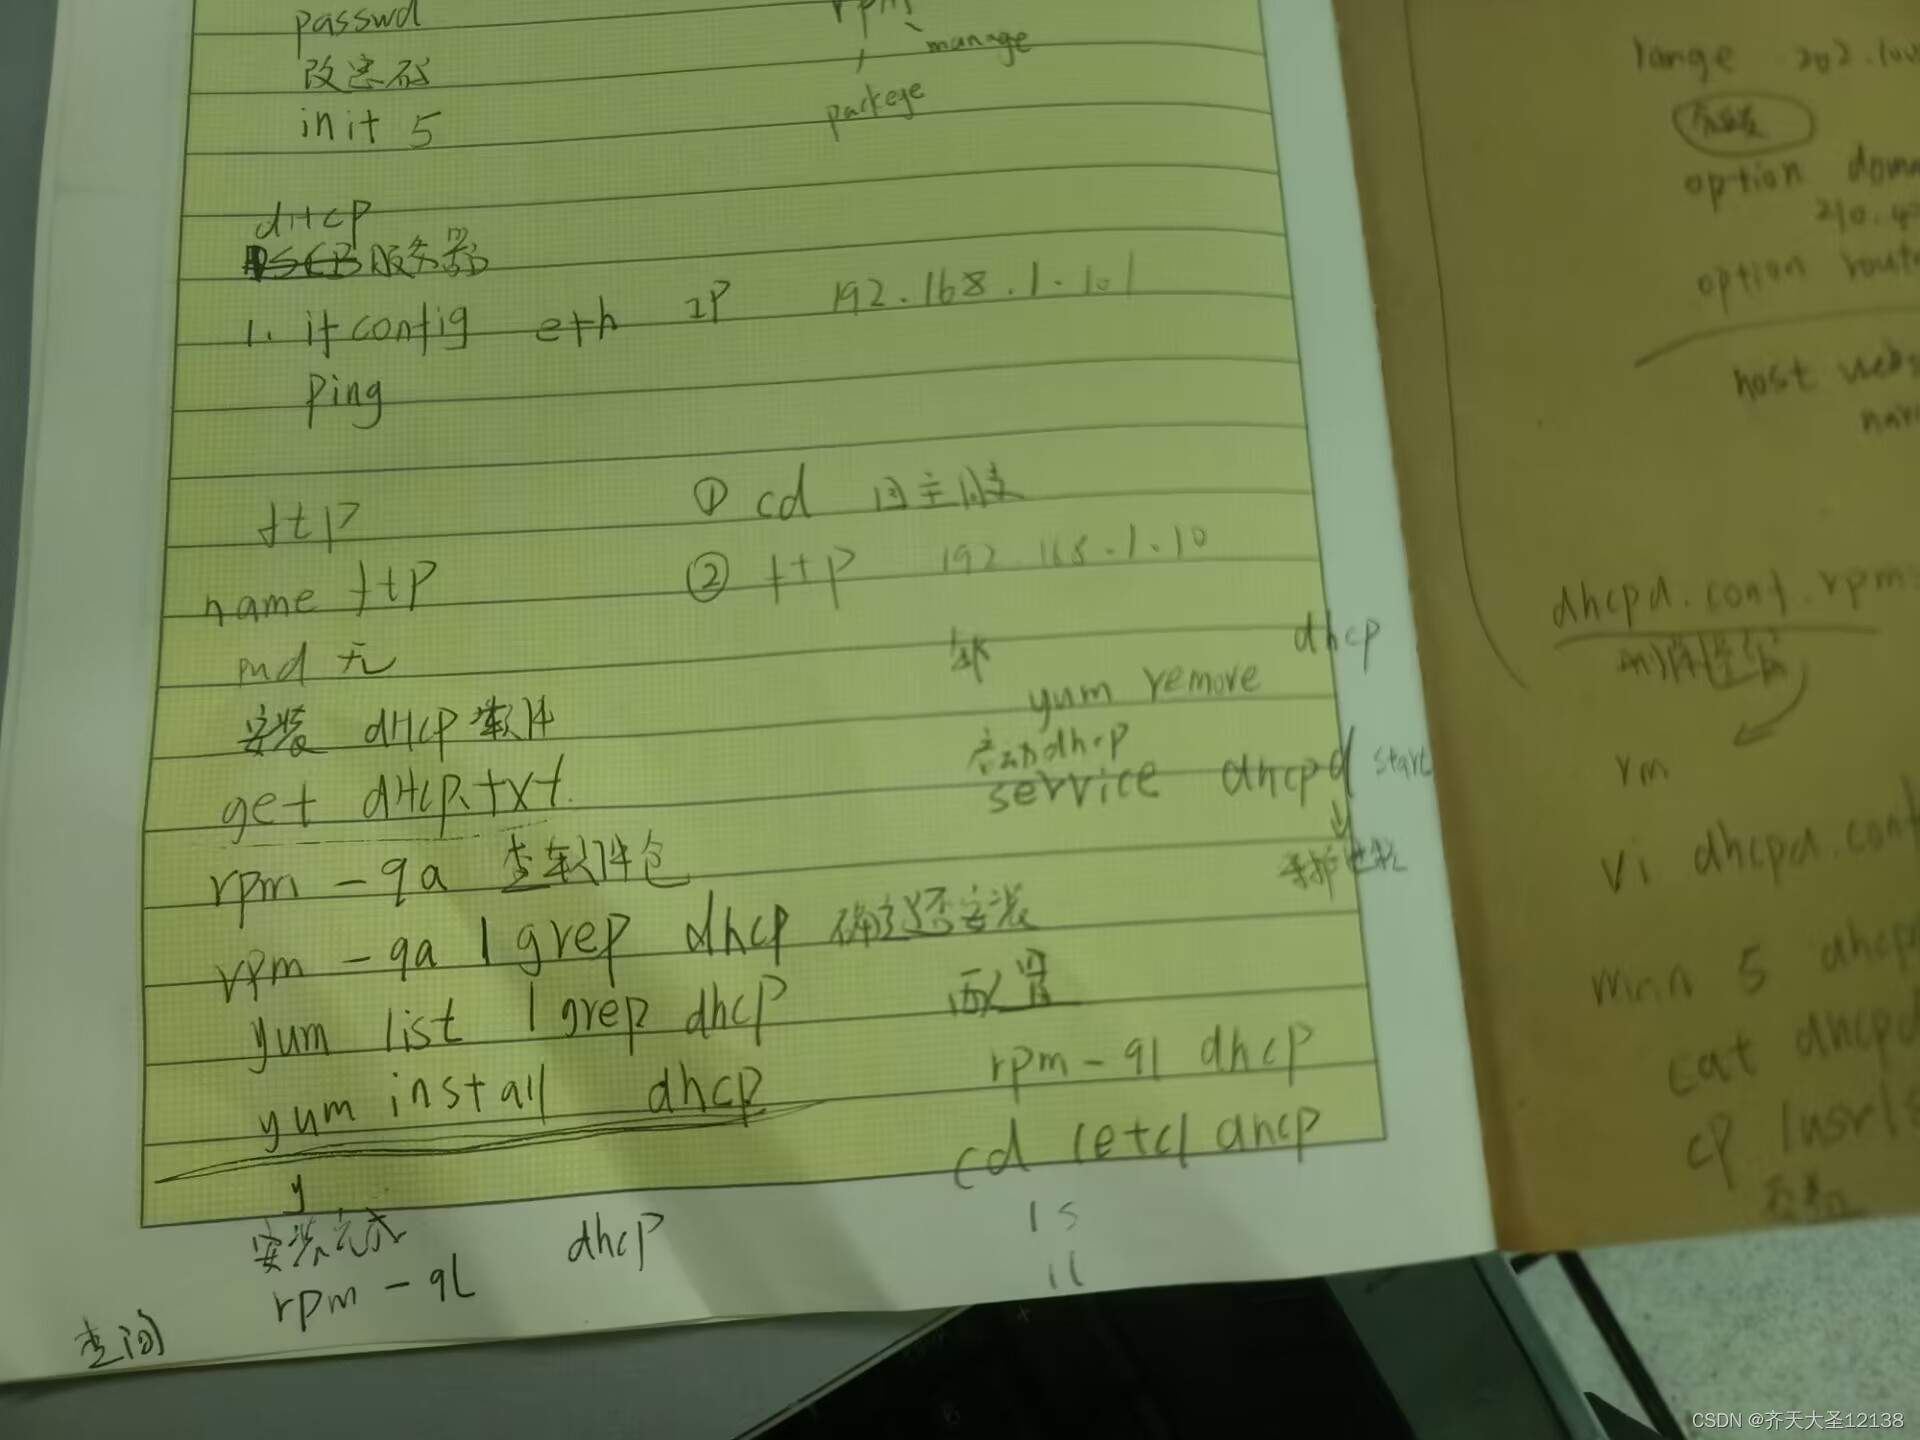 passwd
改密码
init 5
rpm
manage
packege
dHcp
服务器
1. ifconfig eth IP 192.168.1.101
ping
ftp
name ftp
md 无
安装 dHcp 软件
get dHcp.txt
rpm -qa 查软件包
rpm -qa | grep dhcp 确定是否安装
yum list | grep dhcp
yum install dhcp
y
安装完成
查询 rpm -ql dhcp
① cd 回主目录
② ftp 192.168.1.10
yum remove dhcp
启动dhcp
service dhcpd start
配置
rpm -ql dhcp
cd /etc/ dhcp
ls
ll
range 202.
option
210.
option
host
dhcpd.conf.
rm
vi dhcpd.conf
cat dhcpd
cp /usr/s
CSDN @齐天大圣12138